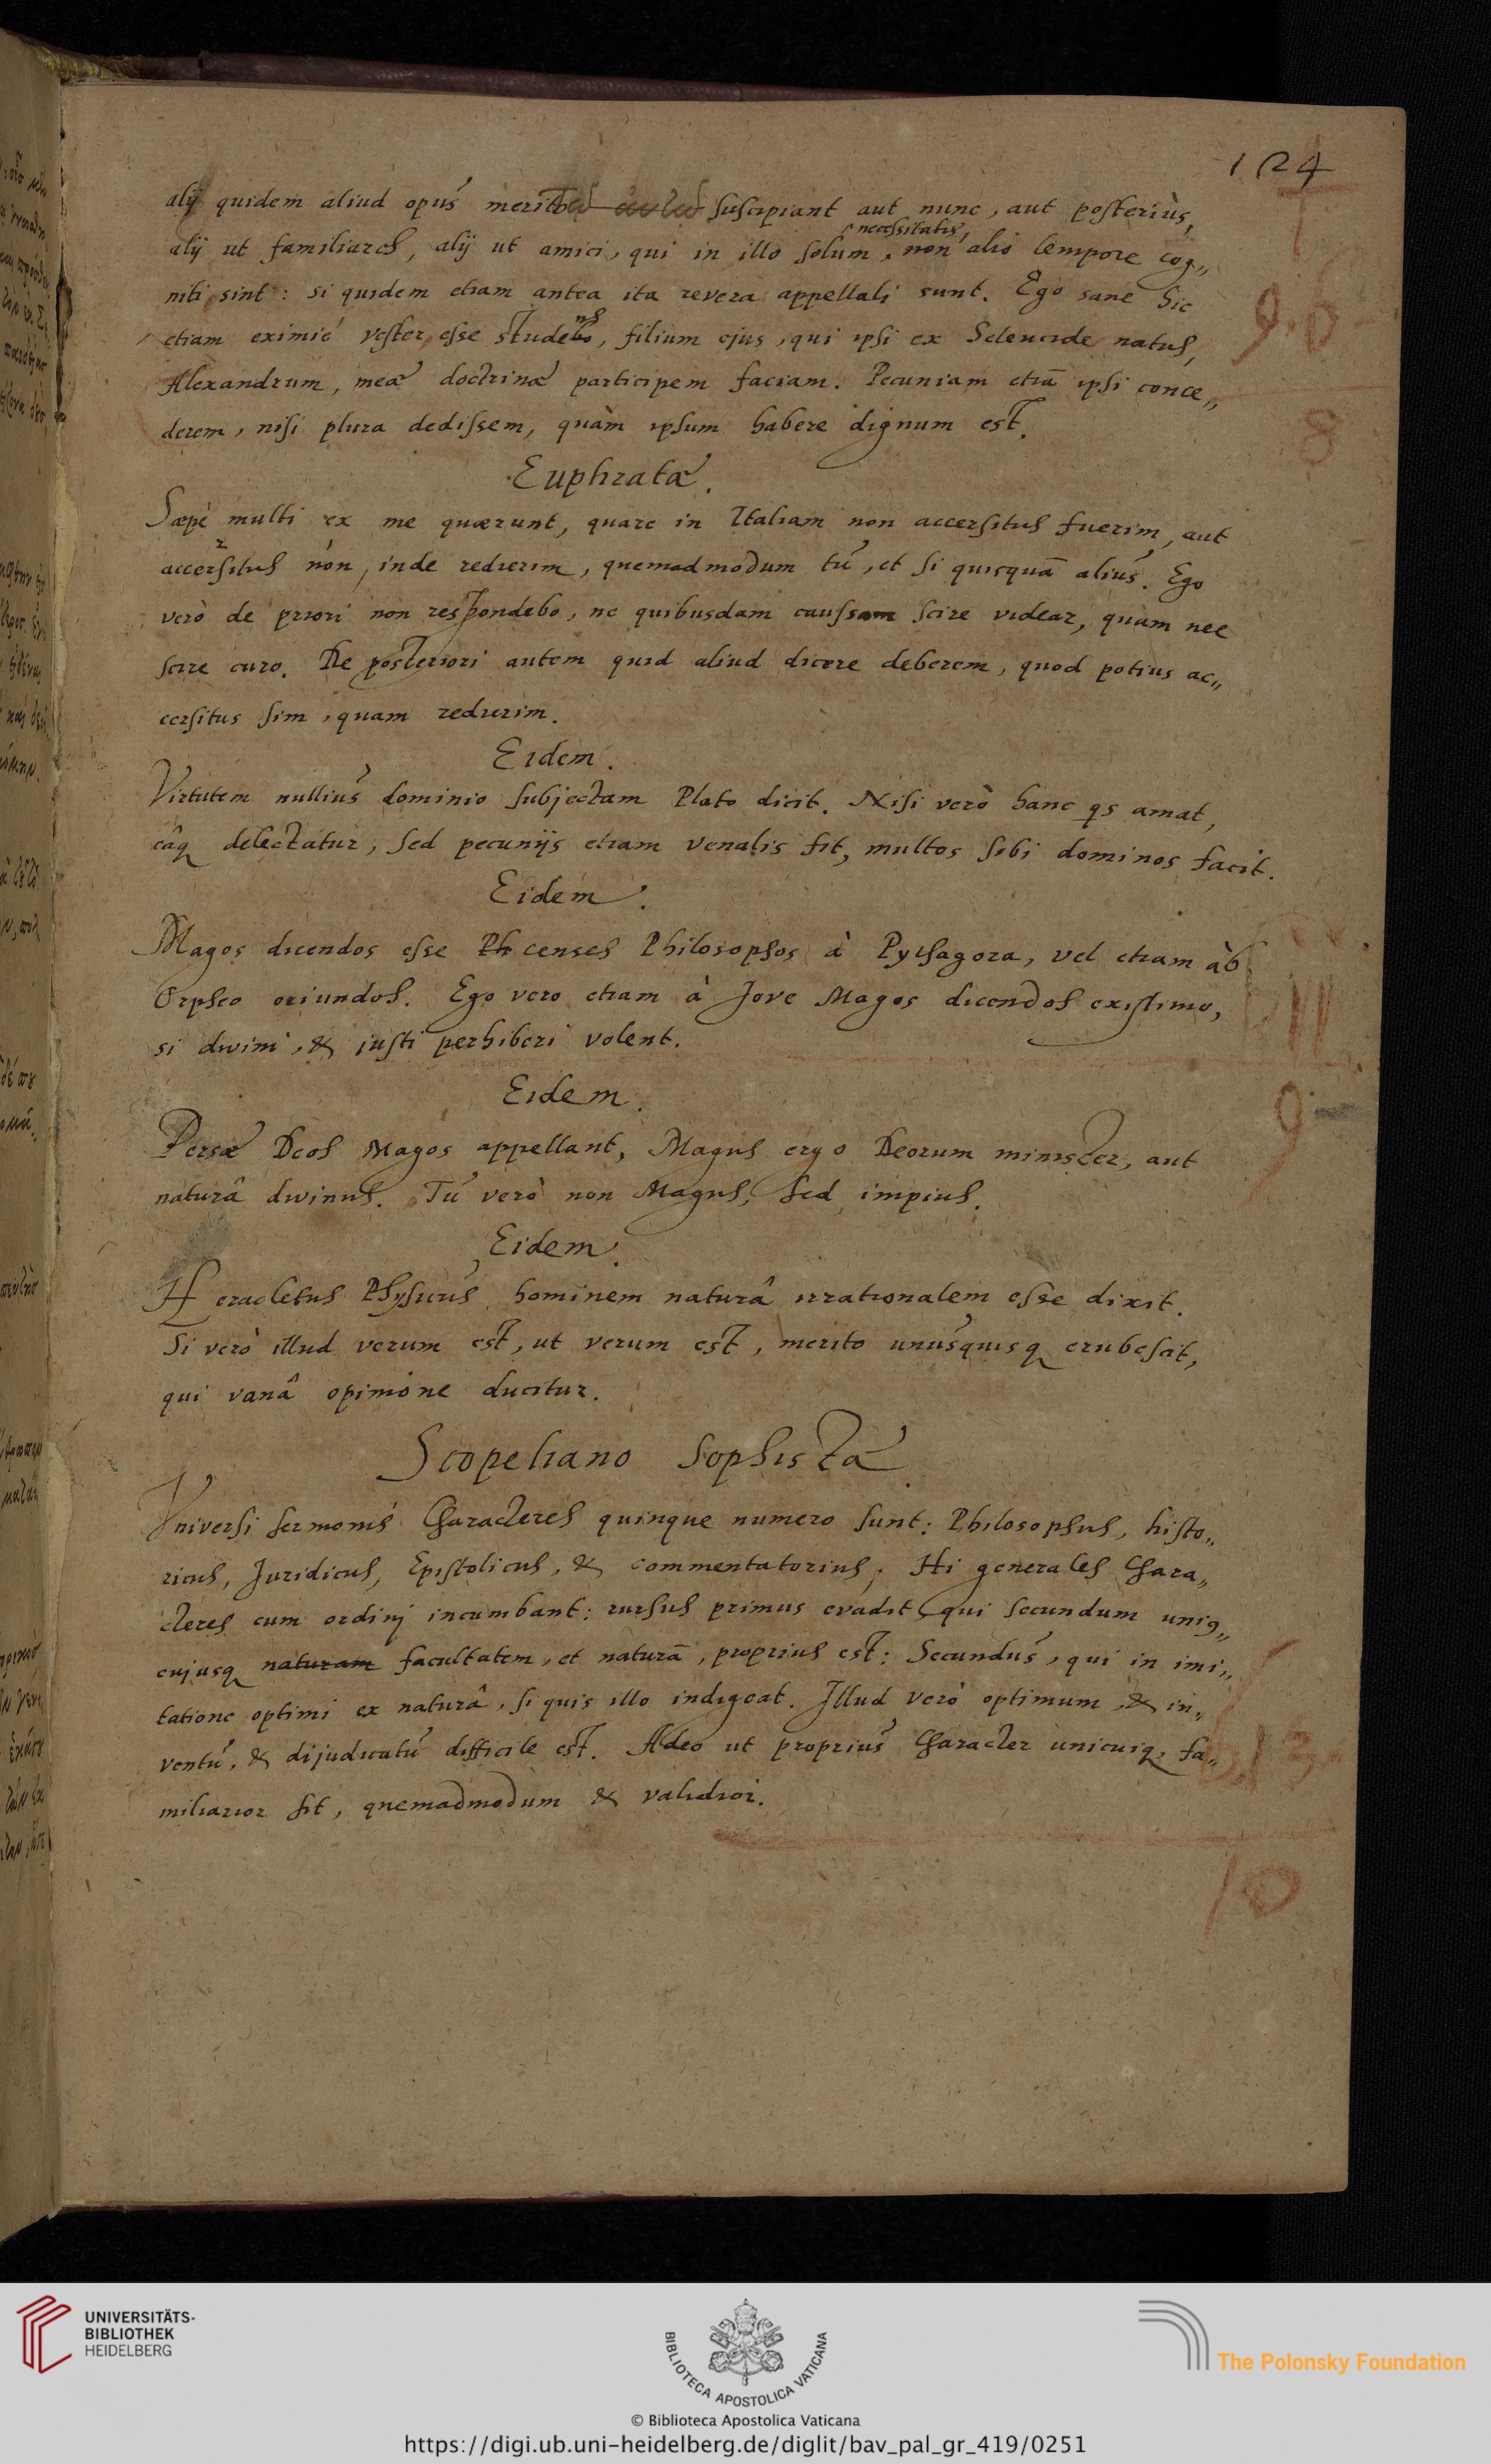 124
alij quidem aliud opus merito suscipiant aut nunc, aut posteriùs,
necessitatis,
alij ut familiares, alij ut amici, qui in illo solum, non alio tempore cog„
niti sint: si quidem etiam antea ita revera appellati sunt. Ego sane sic
etiam eximié vester esse studens, filium ejus, qui ipsi ex Seleucide natus,
Alexandrum, meæ doctrinæ participem faciam. Pecuniam etiā ipsi conce„
derem, nisi plura dedissem, quàm ipsum habere dignum est.
9.6
8
Euphratæ.
Sæpè multi ex me quærunt, quare in Italiam non accersitus fuerim, aut
accersitus non, inde redierim, quemadmodum tu, et si quisquā alius. Ego
verò de priori non respondebo, ne quibusdam caussam scire videar, quam nec
scire curo. De posteriori autem quid aliud dicere deberem, quod potius ac„
cersitus sim, quam redierim.
Eidem.
Virtutem nullius dominio subjectam Plato dicit. Nisi verò hanc qs amat,
eâq delectatur, sed pecunijs etiam venalis fit, multos sibi dominos facit.
Eidem.
Magos dicendos esse censes Philosophos à Pythagora, vel etiam àb
Orpheo oriundos. Ego vero etiam à Jove Magos dicendos existimo,
si divini, & justi perhiberi volent.
9
Eidem.
Persæ Deos Magos appellant, Magus ergo Deorum minister, aut
naturâ divinus. Tu verò non Magus, sed impius.
Eidem.
Heracletus Physicus hominem naturâ irrationalem esse dixit.
Si verò illud verum est, ut verum est, merito unusquisq erubescit,
qui vanâ opinione ducitur.
Scopeliano Sophistæ.
Universi sermonis Characteres quinque numero sunt: Philosophus, histo„
ricus, Juridicus, Epistolicus, & commentatorius; Hi generales Chara„
cteres cum ordinj incumbant: rursus primus evadit, qui secundum uniq„
cujusq naturam facultatem, et naturā, proprius est: Secundus, qui in imi„
tatione optimi ex naturâ, si quis illo indigeat. Illud verò optimum, & in„
ventu, & dijudicatu difficile est. Adeo ut proprius Character unicuiq fa„
miliarior sit, quemadmodum & validior.
13
10
UNIVERSITÄTS-
BIBLIOTHEK
HEIDELBERG
BIBLIOTECA APOSTOLICA VATICANA
The Polonsky Foundation
© Biblioteca Apostolica Vaticana
https://digi.ub.uni-heidelberg.de/diglit/bav_pal_gr_419/0251